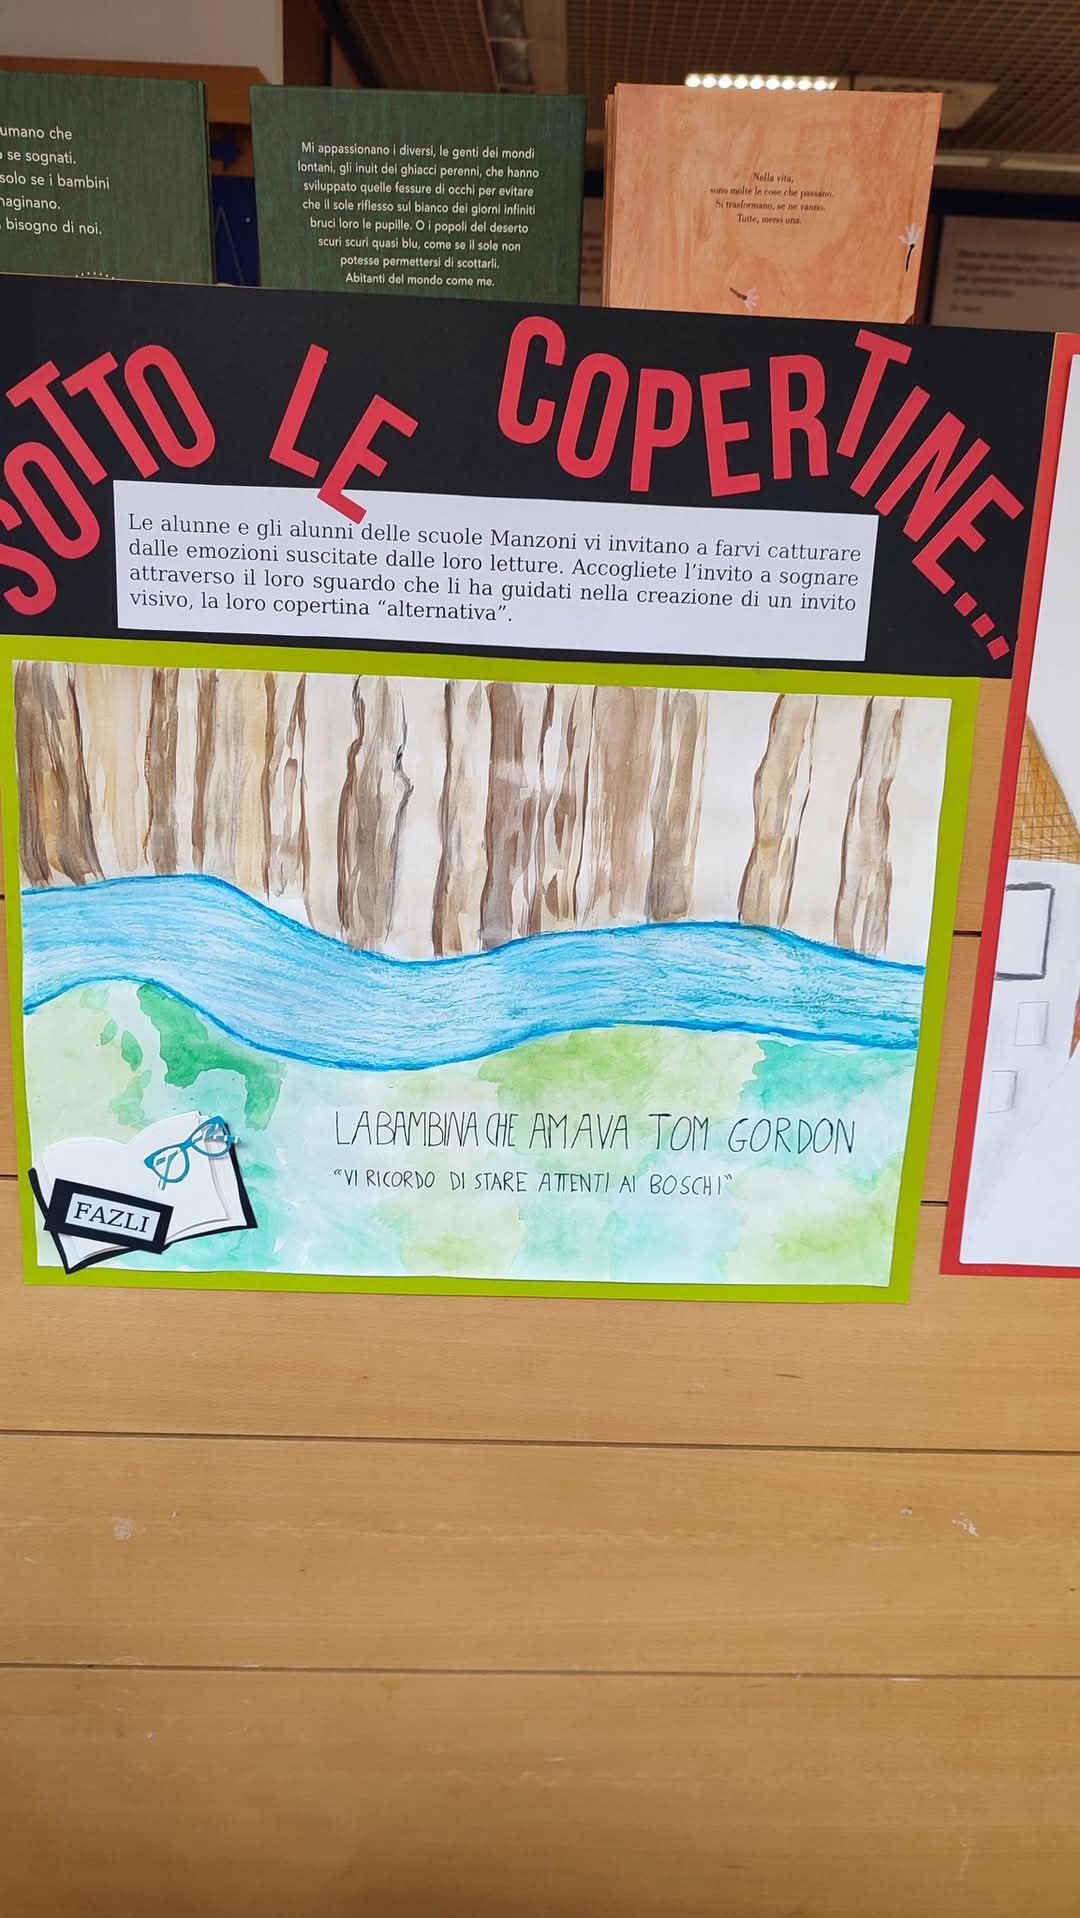 umano che
se sognati.
solo se i bambini
bisogno di noi.
Mi appassionano i diversi, le genti dei mondi
lontani, gli inuit dei ghiacci perenni, che hanno
sviluppato quelle fessure di occhi per evitare
che il sole riflesso sul bianco dei giorni infiniti
bruci loro le pupille. O i popoli del deserto
scuri scuri quasi blu, come se il sole non
potesse permettersi di scottarli.
Abitanti del mondo come me.
Nella vita,
sono molte le cose che passano.
Si trasformano, se ne vanno.
Tutte, meno una.
SOTTO LE COPERTINE...
Le alunne e gli alunni delle scuole Manzoni vi invitano a farvi catturare
dalle emozioni suscitate dalle loro letture. Accogliete l'invito a sognare
attraverso il loro sguardo che li ha guidati nella creazione di un invito
visivo, la loro copertina “alternativa”.
LA BAMBINA CHE AMAVA TOM GORDON
“VI RICORDO DI STARE ATTENTI AI BOSCHI”
FAZLI